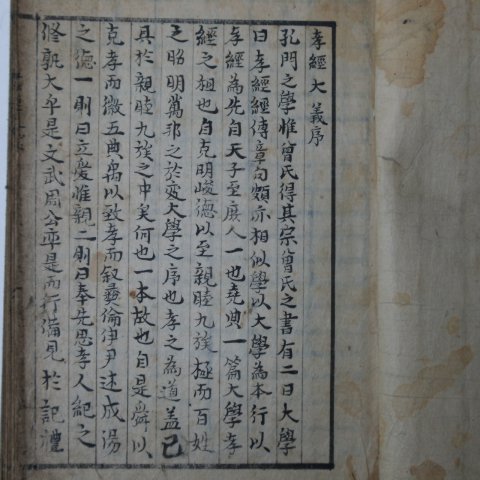 孝經大義序
孔門之學惟曾氏得其宗曾氏之書有二曰大學
曰孝經經傳章句頗亦相似學以大學為本行以
孝經為先自天子至庶人一也堯典一篇大學孝
經之祖也自克明峻德以至親睦九族極而百姓
之昭明萬邦之於變大學之序也孝之為道蓋已
具於親睦九族之中矣何也一本故也自是舜以
克孝而徽五典禹以致孝而叙彝倫伊尹述成湯
之德一則曰立愛惟親二則曰奉先思孝人紀之
修孰大乎是文武周公率是而行備見於記禮